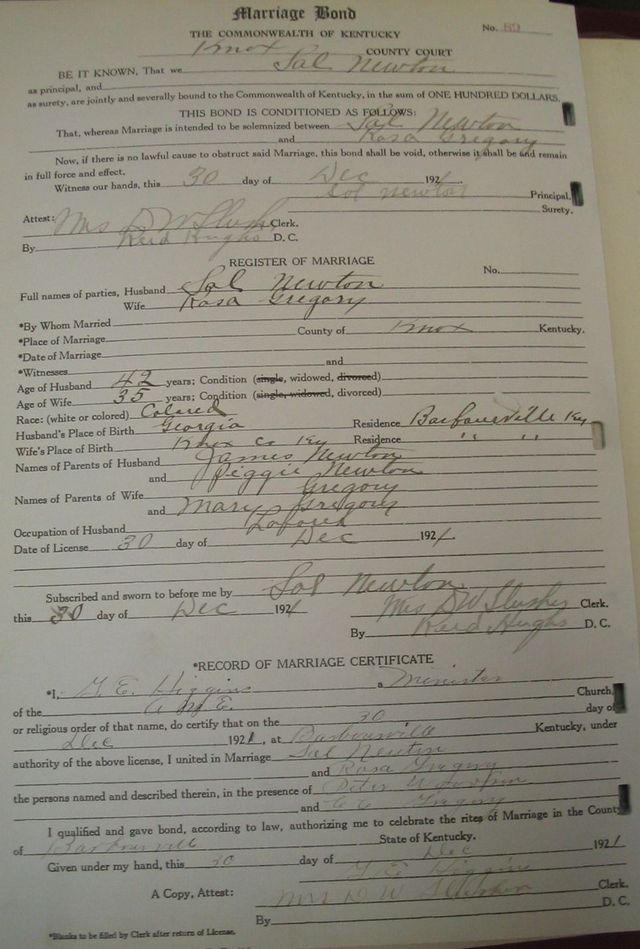 Marriage Bond
THE COMMONWEALTH OF KENTUCKY
No. 59
Knox COUNTY COURT
BE IT KNOWN, That we Sol Newton
as principal, and
as surety, are jointly and severally bound to the Commonwealth of Kentucky, in the sum of ONE HUNDRED DOLLARS.
THIS BOND IS CONDITIONED AS FOLLOWS:
That, whereas Marriage is intended to be solemnized between Sol Newton
and Rosa Gregory
Now, if there is no lawful cause to obstruct said Marriage, this bond shall be void, otherwise it shall be and remain
in full force and effect.
Witness our hands, this 30 day of Dec 192
Sol Newton Principal.
Surety.
Attest: Mrs D W Slusher Clerk.
By Reid Hughs D. C.
REGISTER OF MARRIAGE
No.
Full names of parties, Husband Sol Newton
Wife Rosa Gregory
*By Whom Married
*Place of Marriage County of Knox Kentucky.
*Date of Marriage
*Witnesses and
Age of Husband 42 years; Condition (single, widowed, divorced)
Age of Wife 35 years; Condition (single, widowed, divorced)
Race: (white or colored) Colored
Husband's Place of Birth Georgia Residence Barbourville Ky
Wife's Place of Birth Knox Co Ky Residence " "
Names of Parents of Husband James Newton
and Piggie Newton
Names of Parents of Wife Gregory
and Mary Gregory
Occupation of Husband Laborer
Date of License 30 day of Dec 1921.
Subscribed and sworn to before me by Sol Newton
this 30 day of Dec 1921
Mrs D W Slusher Clerk.
By Reid Hughs D. C.
*RECORD OF MARRIAGE CERTIFICATE
*I, E. Higgins a Minister
of the A M E. Church,
or religious order of that name, do certify that on the 30 day of
Dec 1921, at Barbourville Kentucky, under
authority of the above license, I united in Marriage Sol Newton
and Rosa Gregory
the persons named and described therein, in the presence of
and Gregory
I qualified and gave bond, according to law, authorizing me to celebrate the rites of Marriage in the County
of Barbourville State of Kentucky.
Given under my hand, this 30 day of Dec 1921
E Higgins
A Copy, Attest: Mrs D W Slusher Clerk.
By D. C.
*Blanks to be filled by Clerk after return of License.